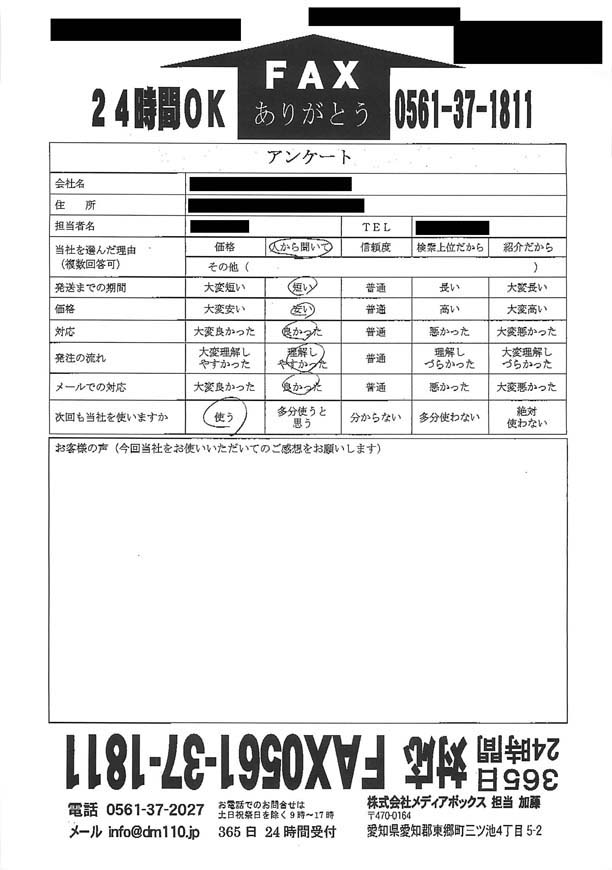 FAX
24時間OK ありがとう 0561-37-1811
アンケート
会社名
住　所
担当者名 TEL
当社を選んだ理由（複数回答可） 価格 人から聞いて 信頼度 検索上位だから 紹介だから
その他（ ）
発送までの期間 大変短い 短い 普通 長い 大変長い
価格 大変安い 安い 普通 高い 大変高い
対応 大変良かった 良かった 普通 悪かった 大変悪かった
発注の流れ 大変理解しやすかった 理解しやすかった 普通 理解しづらかった 大変理解しづらかった
メールでの対応 大変良かった 良かった 普通 悪かった 大変悪かった
次回も当社を使いますか 使う 多分使うと思う 分からない 多分使わない 絶対使わない
お客様の声（今回当社をお使いいただいてのご感想をお願いします）
365日 24時間 対応 FAX0561-37-1811
電話 0561-37-2027 お電話でのお問合せは 土日祝祭日を除く9時～17時 株式会社メディアボックス 担当 加藤
〒470-0164
メール info@dm110.jp 365日 24時間受付 愛知県愛知郡東郷町三ツ池4丁目5-2